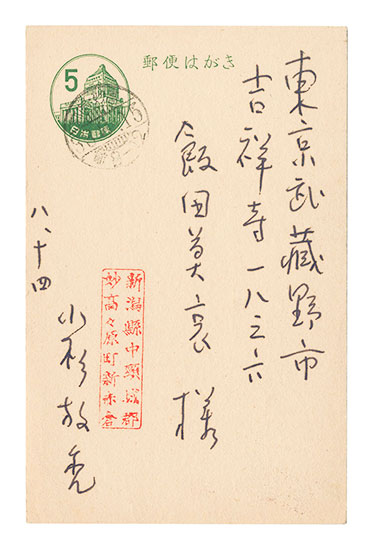 郵便はがき
5
日本郵便
東京武蔵野市
吉祥寺一八三六
飯田善衷様
新潟縣中頸城郡
妙高々原町新赤倉
小杉放菴
八、十四